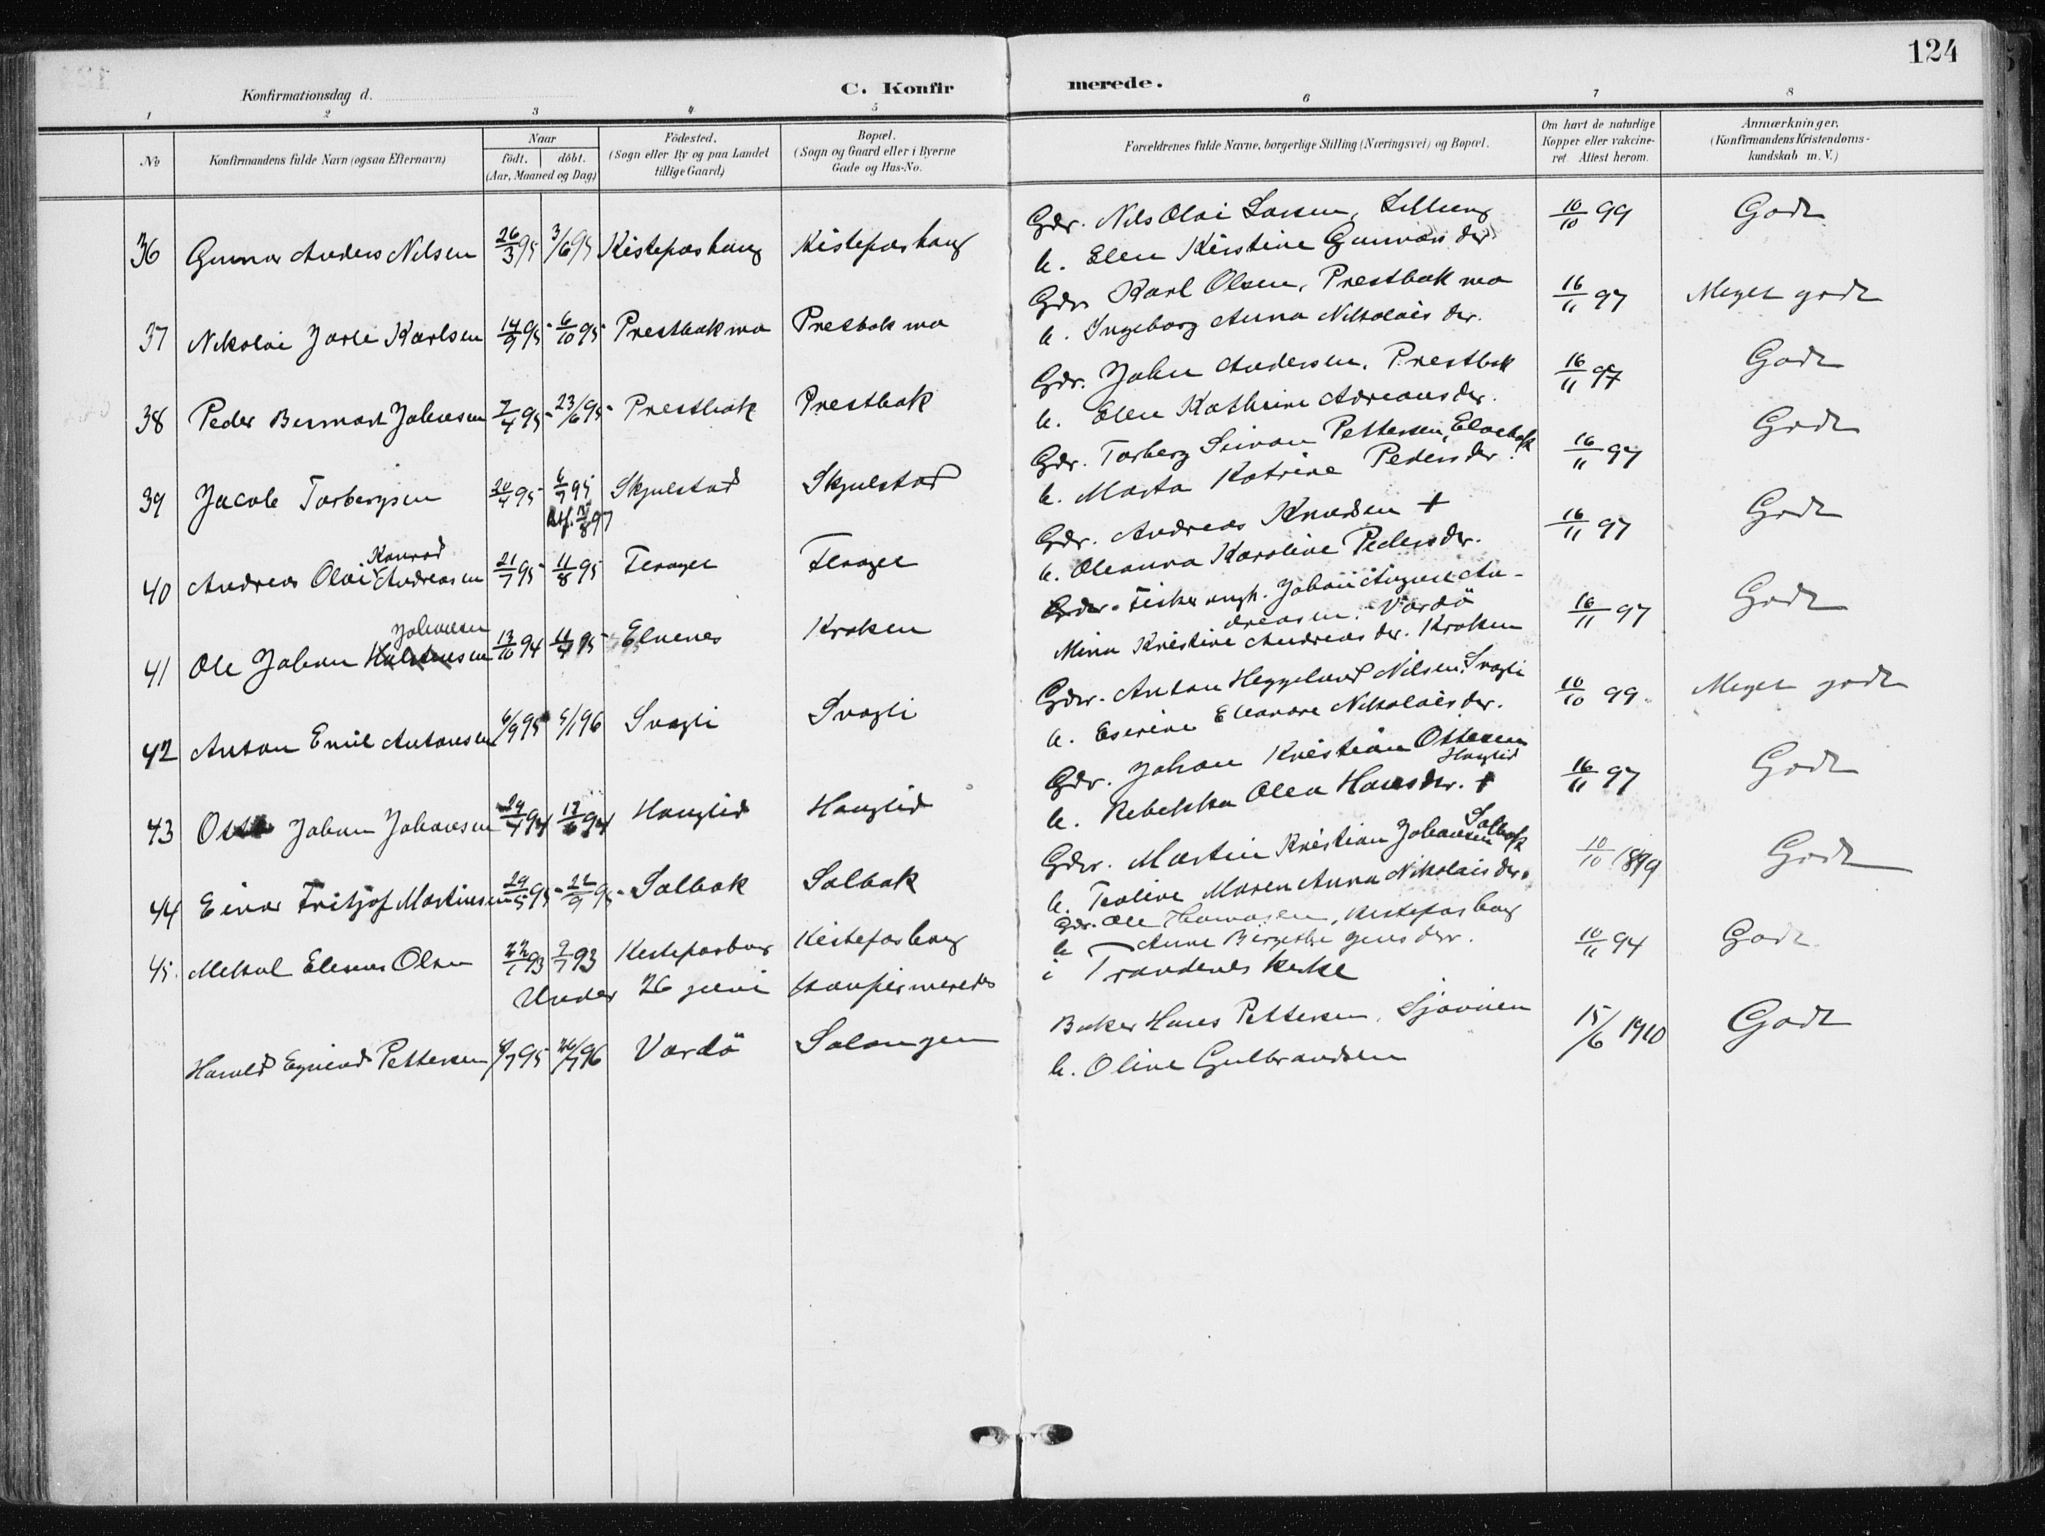 124
Konfirmationsdag d.
C. Konfirmerede.
1 2 3 4 5 6 7 8
No
Konfirmandens fulde Navn (ogsaa Efternavn)
Naar
født. døbt.
(Aar, Maaned og Dag)
Fødested.
(Sogn eller By og paa Landet
tillige Gaard)
Bopæl.
(Sogn og Gaard eller i Byerne
Gade og Hus-No.
Forældrenes fulde Navne, borgerlige Stilling (Næringsvei) og Bopæl.
Om havt de naturlige
Kopper eller vakcine-
ret. Attest herom.
Anmærkninger.
(Konfirmandens Kristendoms-
kundskab m. V.)
36 Gunnar Anders Nilsen 26/3 95 3/6 95 Kistefoshaug Kistefoshaug
Gdr. Nils Olai Larsen, 10/10 99 Godt
h. Elen Kirstine Gunnarsdr
37 Nikolai Jarle Karlsen 14/9 95 6/10 95 Prestbakmo Presbakmo
Gdr. Karl Olsen, Prestbakmo 16/11 97 Meget godt
h. Ingeborg Anna Nikolaisdr.
38 Peder Bernart Johnsen 2/4 95 23/6 95 Prestbak Prestbak
Gdr. John Andersen, Prestbak 16/11 97 Godt
h. Elen Kathrine Adreansdr.
39 Jacob Torbergsen 20/4 95 6/7 95 Skjulstad Skjulstad
Gdr. Torberg Simon Pettersen, Elvebak 16/11 97 Godt
h. Marta Katrine Pedersdr.
40 Andreas Olai Konrad Andreasen 21/7 95 11/8 95
Gdr. Andreas Knudsen + 16/11 97 Godt
h. Oleanna Karoline Pedersdr.
41 Ole Johan Johansen 13/10 94 11/7 95 Elvenes Kroken
Fisker ungk. Johan August An-
dreasen. Vardö 16/11 97 Godt
Mina Kristine Andreasdr. Kroken
42 Anton Emil Antonsen 6/9 95 5/1 96 Svagli Svagli
Gdr. Anton Heggelund Nilsen, Svagli 10/10 99. Meget godt
h. Eserine Eleanore Nikolaisdr.
43 Otto Johan Johansen 29/4 94 17/6 94 Hauglid Hauglid
Gdr. Johan Kristian Ottesen Hauglid 16/11 97 Godt
h. Rebekka Olea Hansdr. +
44 Einar Fritjof Martinsen 29/5 95 22/9 95 Salbak Salbak
Gdr. Martin Kristian Johansen Salbak 10/10 1899 Godt
h. Teoline Maren Anna Nikolaisdr.
45. Mekal Elenus Olsen 22/1 93 2/7 93 Kistefoshaug Kistefoshaug
Gdr. Ole Thomasen, Kistefoshaug 10/11 94 Godt
h Anne Birgethe Jensdr.
Under 26 juni konfirmeredes
i Trondenes Kirke
Harald Egmund Pettersen 8/7 95 26/7 96 Vardö Salangen
Baker Hans Pettersen, Sjøvien 15/6 1910 Godt
h. Oline Gulbrandsen